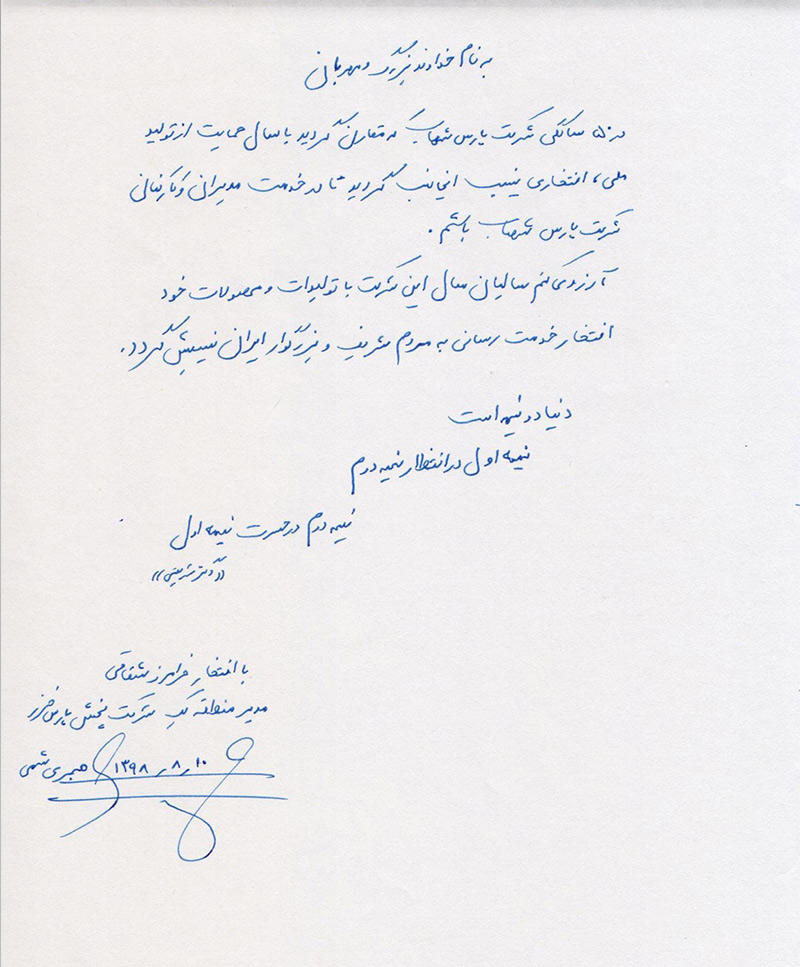 به نام خداوند بزرگ و مهربانی
در ۵۰ سالگی شرکت پارس شهاب که مقارن گردید با سال حمایت از تولید
ملی، افتخاری نصیب اینجانب گردید تا در خدمت مدیران و کارکنانی
شرکت پارس شهاب باشم.
آرزو می کنم سالیان سال این شرکت با تولیدات و محصولات خود
افتخار خدمت رسانی به مردم شریف و بزرگوار ایران نصیبش گردد.
دنیا دو نیمه است
نیمه اول در انتظار نیمه دوم
نیمه دوم در حسرت نیمه اول
«دکتر شریعتی»
با افتخار فرامرز شقاقی
مدیر منطقه یک شرکت پخش پارس خزر
۱۳۹۸٫۸٫۱۰ هجری شمسی